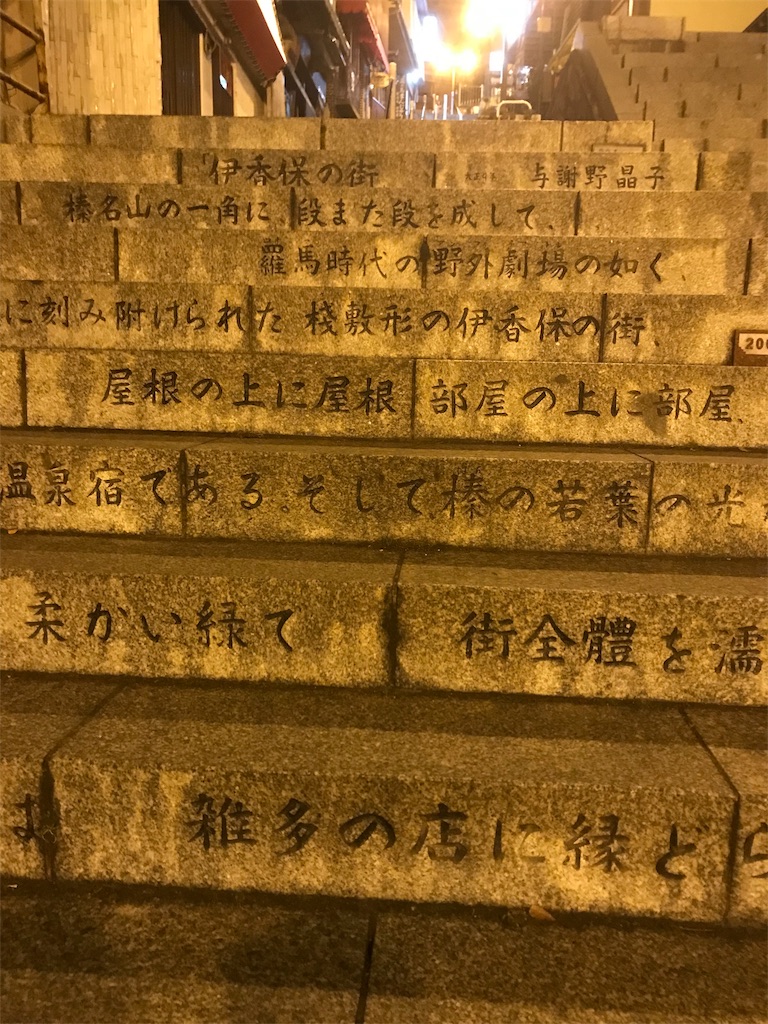 伊香保の街 与謝野晶子
榛名山の一角に、段また段を成して、
羅馬時代の野外劇場の如く、
に刻み附けられた 桟敷形の伊香保の街、
屋根の上に屋根、部屋の上に部屋、
温泉宿である。そして、榛の若葉の光
柔かい緑て 街全體を濡
雑多の店に縁どら
200